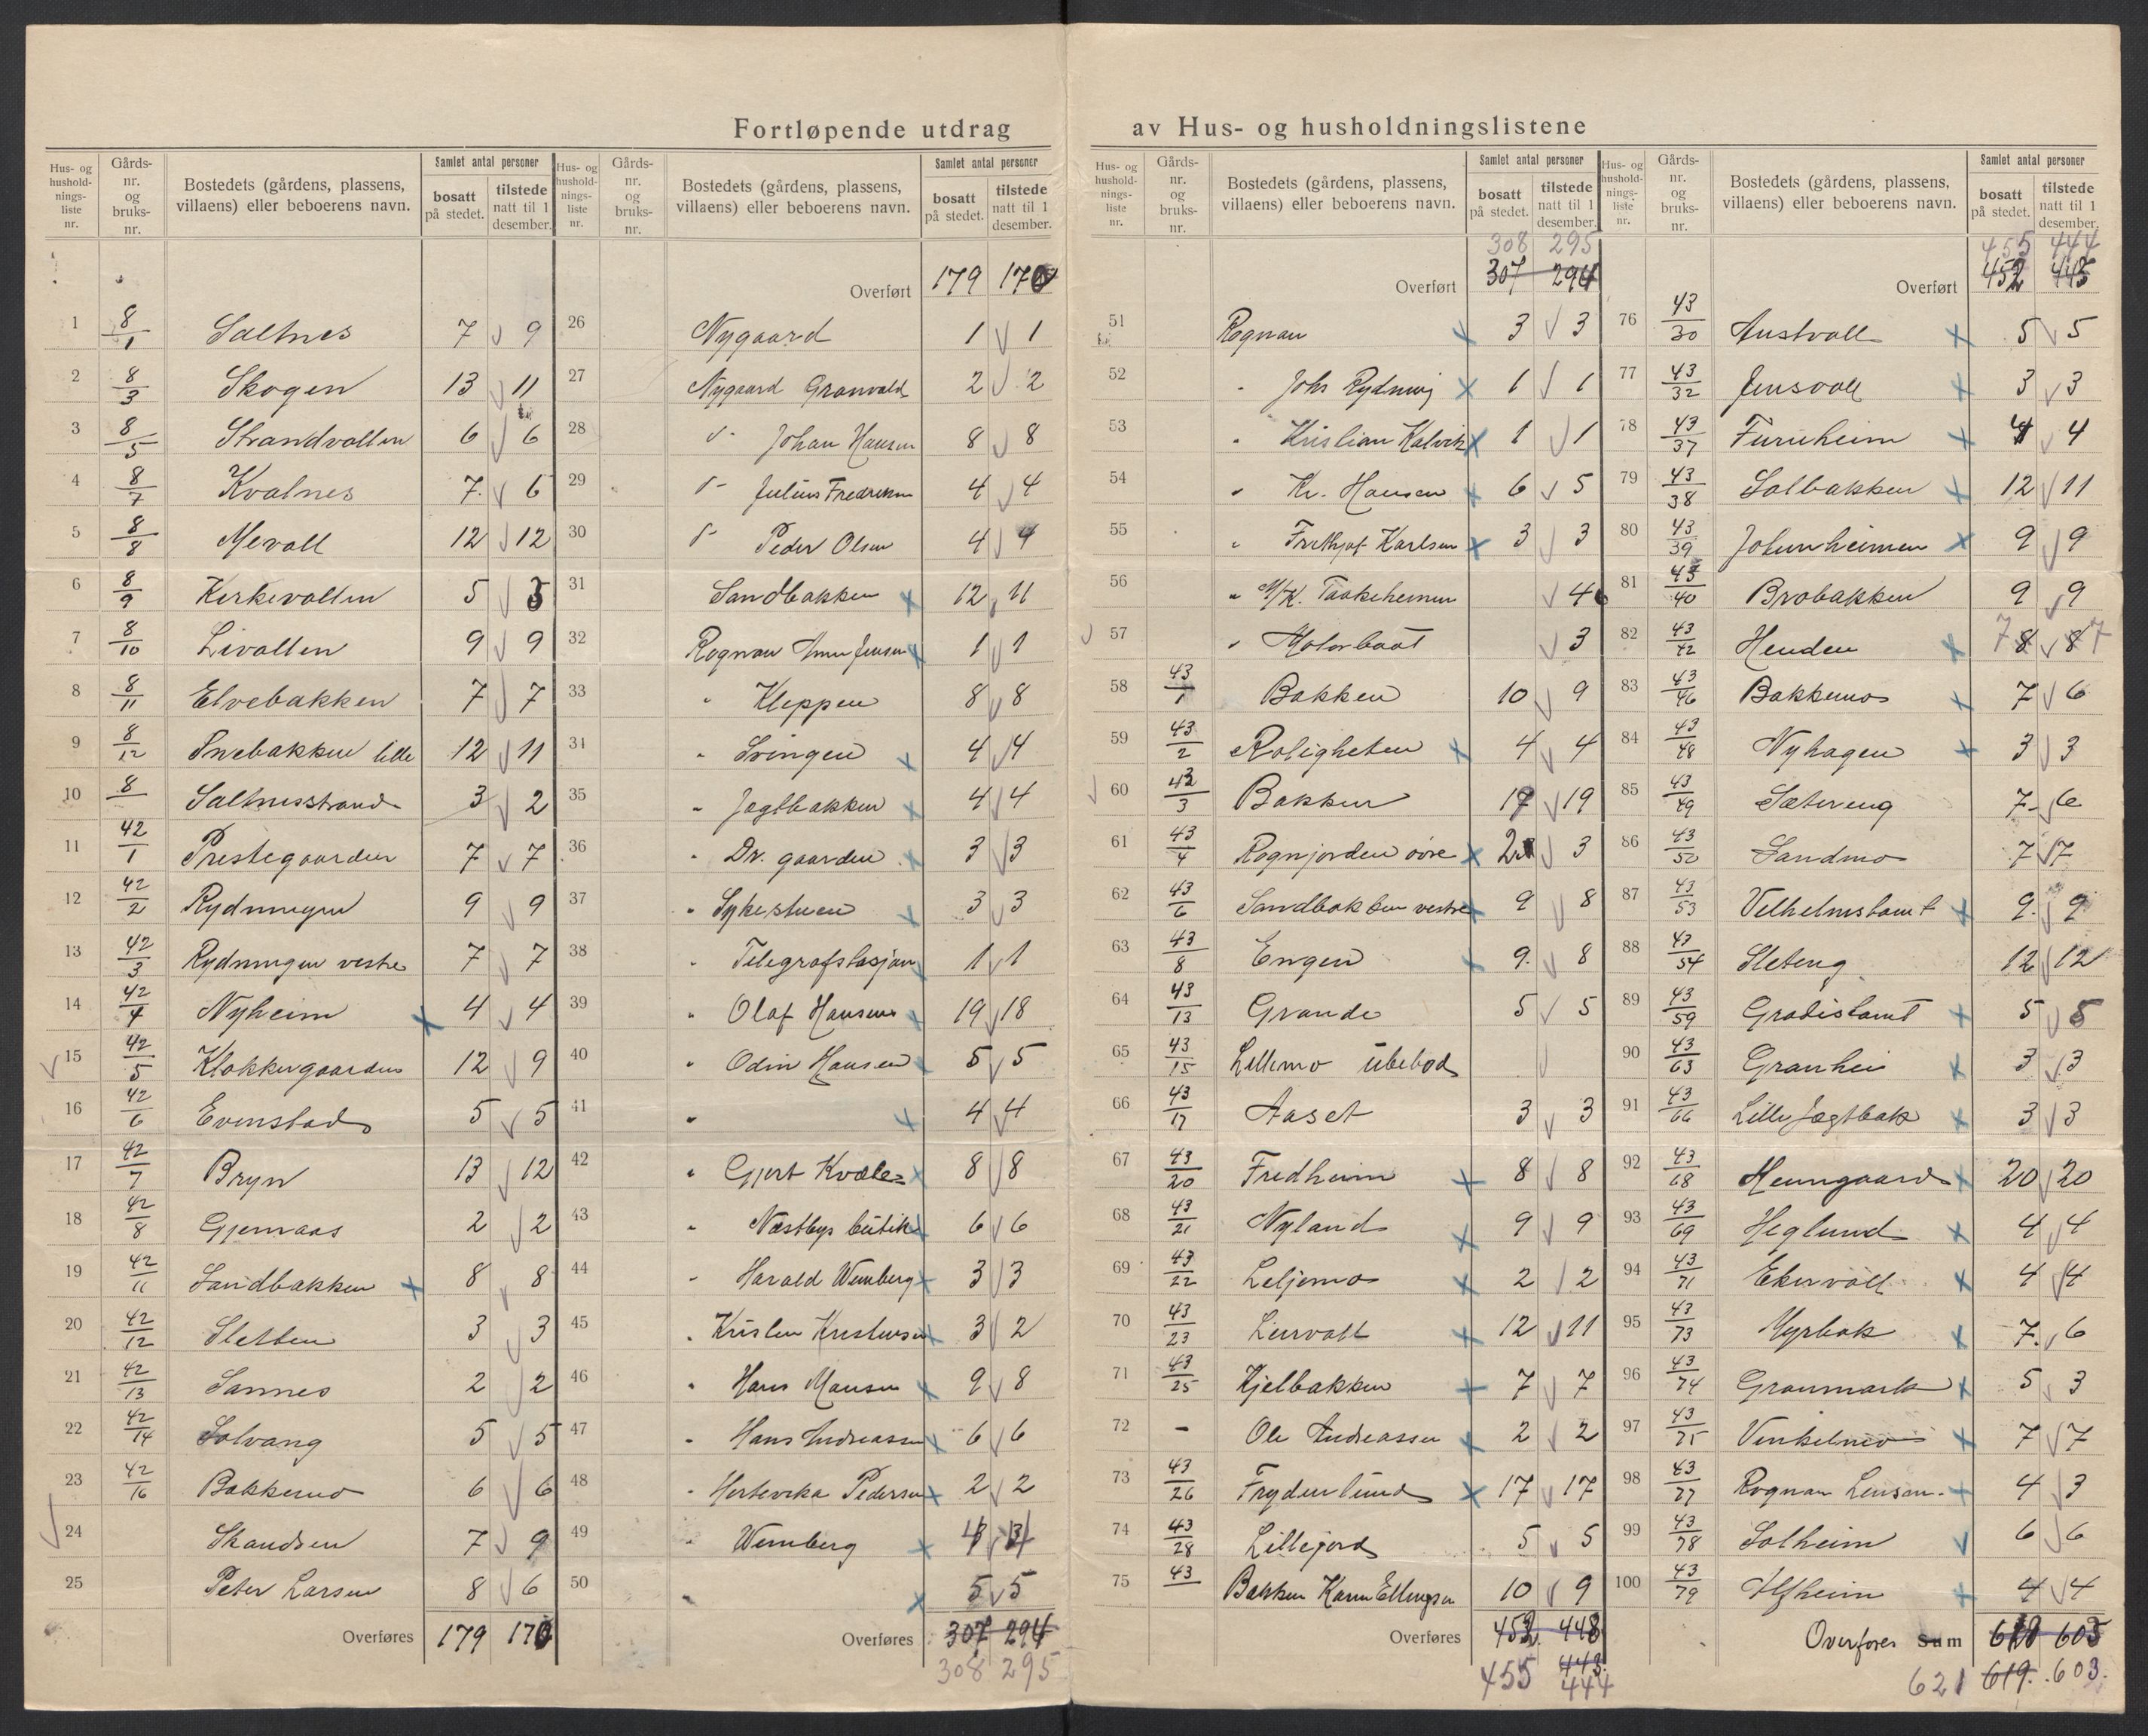 Fortløpende utdrag av Hus- og husholdningslistene
Hus- og hushold- nings- liste nr. | Gårds- nr. og bruks- nr. | Bostedets (gårdens, plassens, villaens) eller beboerens navn. | Samlet antal personer | bosatt på stedet. | tilstede natt til 1 desember.
1 8/1 Saltnes 7 9
2 8/3 Skogen 13 11
3 8/5 Strandvollen 6 6
4 8/7 Kvalnes 7 6
5 8/8 Mevoll 12 12
6 8/9 Kirkevollen 5 5
7 8/10 Livollen 9 9
8 8/11 Elvebakken 7 7
9 8/12 Snebakken lille 12 11
10 8/ Saltnesstrand 3 2
11 42/1 Prestegaarden 7 7
12 42/2 Rydningen 9 9
13 42/3 Rydningen vestre 7 7
14 42/4 Nyheim 4 4
15 42/5 Klokkergaarden 12 9
16 42/6 Evenstad 5 5
17 42/7 Bryn 13 12
18 42/8 Gjemaas 2 2
19 42/11 Sandbakken 8 8
20 42/12 Sletten 3 3
21 42/13 Sannes 2 2
22 42/14 Solvang 5 5
23 42/16 Bakkemo 6 6
24 Skandsen 7 9
25 Peter Larsen 8 6
Overføres 179 170
Hus- og hushold- nings- liste nr. | Gårds- nr. og bruks- nr. | Bostedets (gårdens, plassens, villaens) eller beboerens navn. | Samlet antal personer | bosatt på stedet. | tilstede natt til 1 desember.
Overført 179 170
26 Nygaard 1 1
27 Nygaard Granvold 2 2
28 Johan Hansen 8 8
29 Julius Fredriksen 4 4
30 Peder Olsen 4 4
31 Sandbakken 12 11
32 Rognan Jensen 1 1
33 " Kleppen 8 8
34 " Svingen 4 4
35 " Jagtbakken 4 4
36 " Dr. gaarden 3 3
37 " Sykestuen 3 3
38 " Telegrafstasjon 1 1
39 " Olaf Hansen 19 18
40 " Odin Hansen 5 5
41 " 4 4
42 " Gjert Kvæle 8 8
43 " Næstbys butik 6 6
44 " Harald Wemberg 3 3
45 " Kristen Kristensen 3 2
46 " Hans Monsen 9 8
47 " Hans Andreassen 6 6
48 " Pedersen 2 2
49 " Wemberg 4 4
50 " 5 5
Overføres 307 294
308 295
Hus- og hushold- nings- liste nr. | Gårds- nr. og bruks- nr. | Bostedets (gårdens, plassens, villaens) eller beboerens navn. | Samlet antal personer | bosatt på stedet. | tilstede natt til 1 desember.
308 295
Overført 307 294
51 Rognan 3 3
52 " Johs Rydning 1 1
53 " Kristian Kalvik 1 1
54 " Kr. Hansen 6 5
55 " Frithjof Karlsen 3 3
56 " M/K. Taakeheimen 4
57 " Motorbaat 3
58 43/1 Bakken 10 9
59 43/2 Roligheten 4 4
60 43/3 Bakken 19 19
61 43/4 Rognjorden øvre 2 3
62 43/6 Sandbakken vestre 9 8
63 43/8 Engen 9 8
64 43/13 Grande 5 5
65 43/15 Lillemo ubebod
66 43/17 Aaset 3 3
67 43/20 Fredheim 8 8
68 43/21 Nyland 9 9
69 43/22 Liljemo 2 2
70 43/23 Leirvoll 12 11
71 43/25 Kjelbakken 7 7
72 – Ole Andreassen 2 2
73 43/26 Frydenlund 17 17
74 43/28 Lillejord 5 5
75 43/ Bakken Karen Ellingsen 10 9
Overføres 452 448
443
455 444
Hus- og hushold- nings- liste nr. | Gårds- nr. og bruks- nr. | Bostedets (gårdens, plassens, villaens) eller beboerens navn. | Samlet antal personer | bosatt på stedet. | tilstede natt til 1 desember.
455 444
Overført 452 443
76 43/30 Austvoll 5 5
77 43/32 Jensvoll 3 3
78 43/37 Furuheim 4 4
79 43/38 Solbakken 12 11
80 43/39 Jotunheimen 9 9
81 43/40 Brobakken 9 9
82 43/42 Henden 7 8 8 7
83 43/46 Bakkemo 7 6
84 43/48 Nyhagen 3 3
85 43/49 Sætereng 7 6
86 43/50 Sandmo 7 7
87 43/53 Velhelmstomt 9 9
88 43/54 Sleteng 12 12
89 43/59 Gradistomt 5 5
90 43/63 Granhei 3 3
91 43/66 Lille Jægtbak 3 3
92 43/68 Heimgaard 20 20
93 43/69 Heglund 4 4
94 43/71 Ekervoll 4 4
95 43/73 Myrbak 7 6
96 43/74 Granmark 5 3
97 43/75 Vinkelmo 7 7
98 43/77 Rognan Lensm. 4 3
99 43/78 Solheim 6 6
100 43/79 Alfheim 4 4
Overføres Sum 618 603
621 619 603